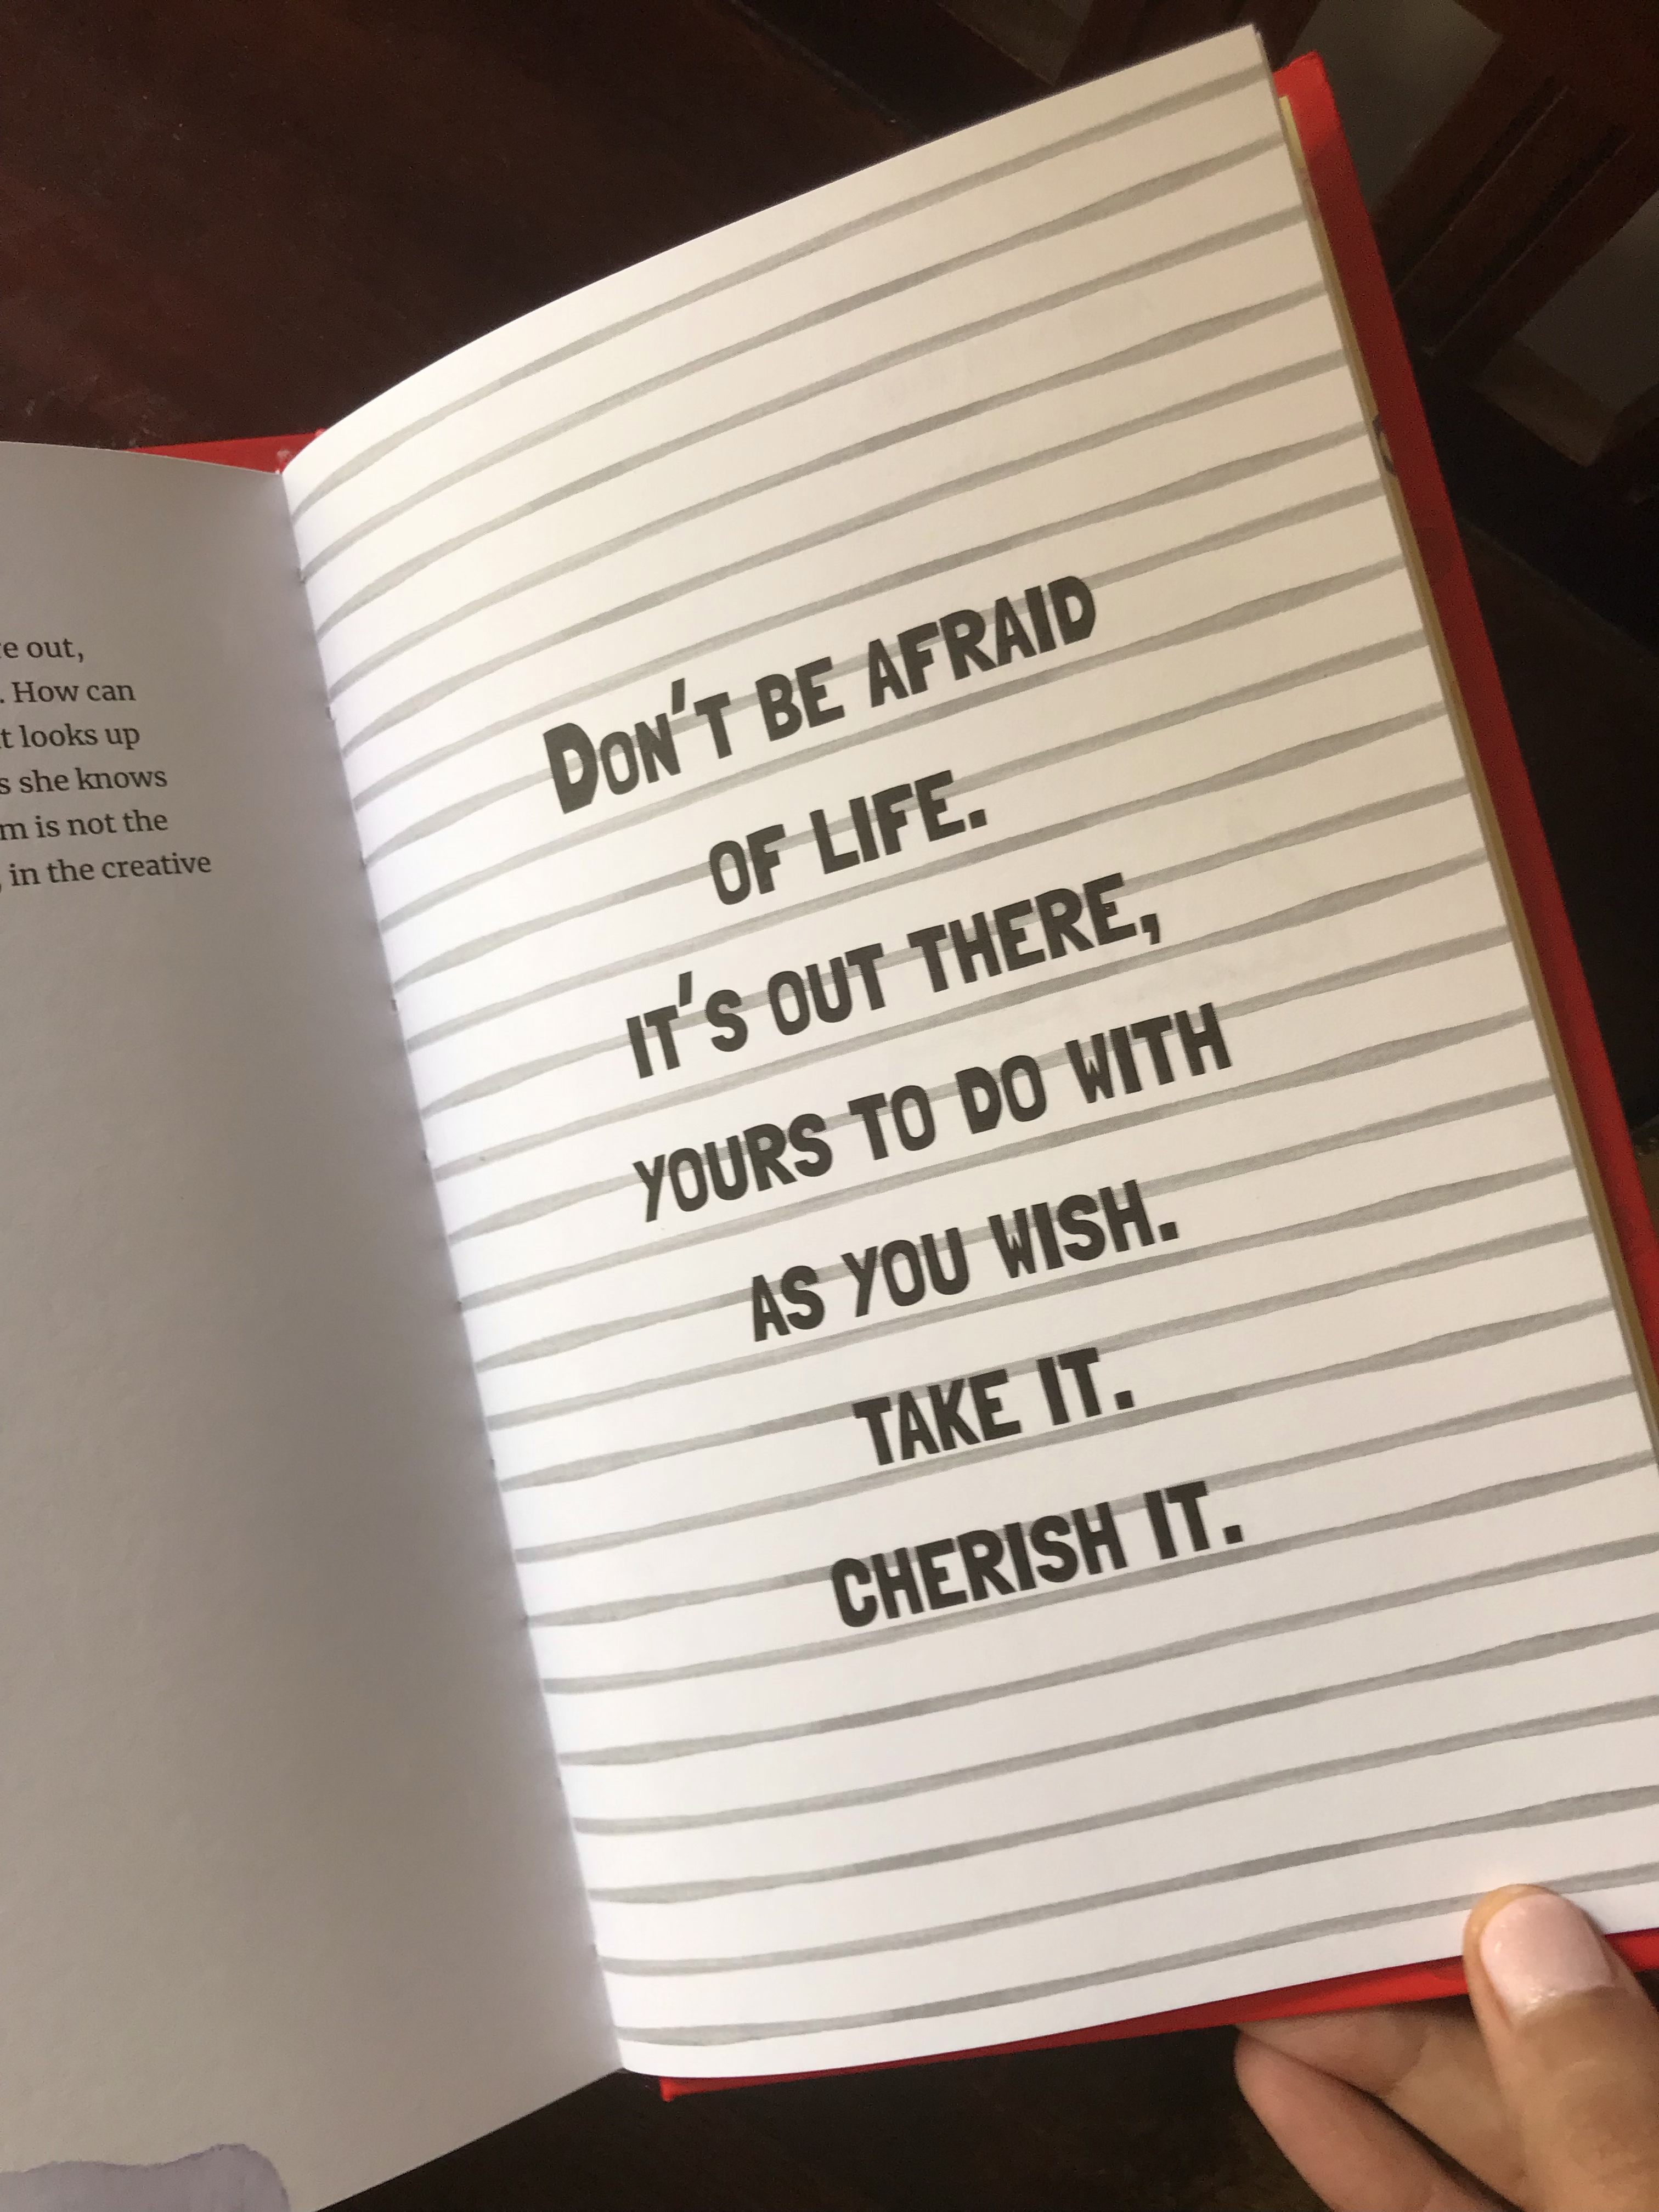 out,
. How can
looks up
she knows
is not the
, in the creative
DON'T BE AFRAID
OF LIFE.
IT'S OUT THERE,
YOURS TO DO WITH
AS YOU WISH.
TAKE IT.
CHERISH IT.